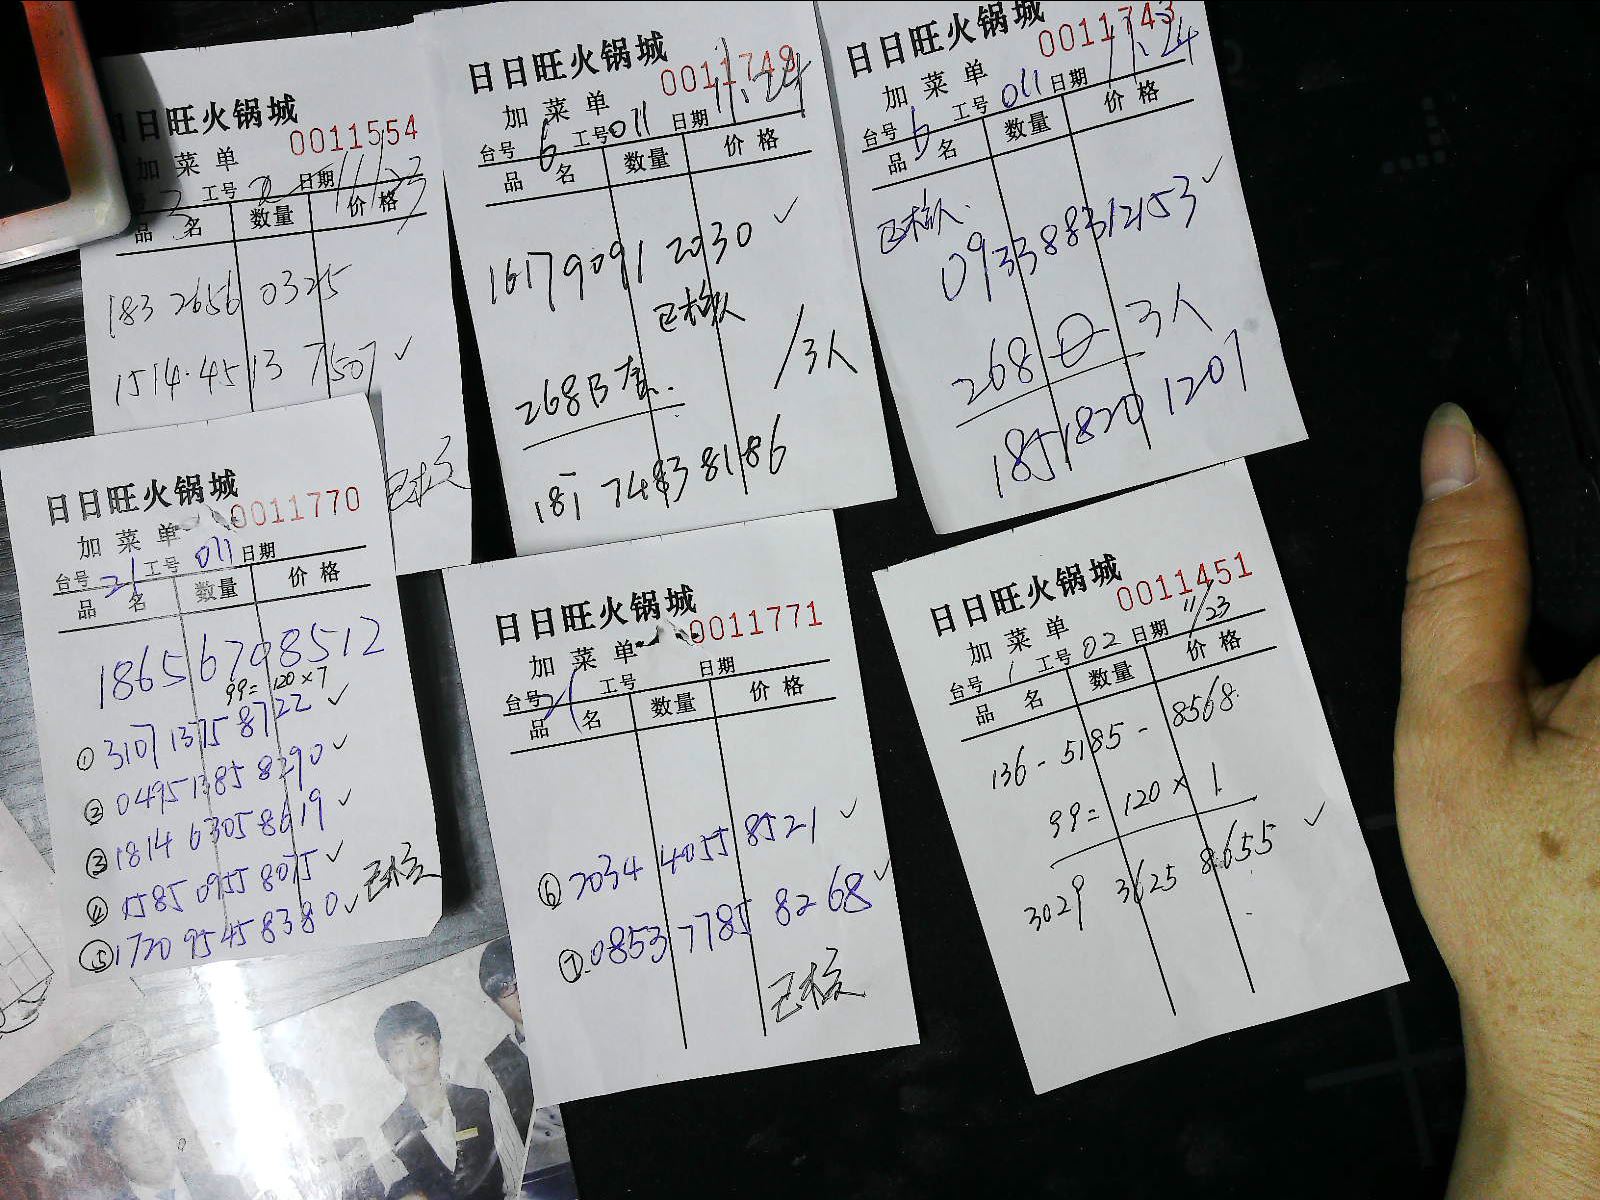 日日旺火锅城
0011554
加菜单
2 工号 2 日期 11/23
品名 数量 价格
183 2656 0325
1514.4513 7507 ✓
已核
日日旺火锅城
0011749
加菜单
台号 6 工号 011 日期 11.24
品名 数量 价格
16179091 2030 ✓
已核
268B套. /3人
181 7483 8186
日日旺火锅城
0011743
加菜单
台号 6 工号 011 日期 11.24
品名 数量 价格
已核
093388312153 ✓
268 3人
18518201207
日日旺火锅城
0011770
加菜单
台号 21 工号 011 日期
品名 数量 价格
18656708512
99= 120×7
① 3107 1375 8722 ✓
② 0495 1385 8290 ✓
③ 1814 6305 8619 ✓
④ 1585 0955 8075 ✓
⑤ 1720 9545 8380 ✓
已核
日日旺火锅城
0011771
加菜单
台号 21 工号 日期
品名 数量 价格
⑥ 2034 4055 8521 ✓
⑦ 0853 7785 8268 ✓
已核
日日旺火锅城
0011451
加菜单
台号 1 工号 02 日期 11/23
品名 数量 价格
136-5185-8568
99= 120×1
3029 3625 8655 ✓